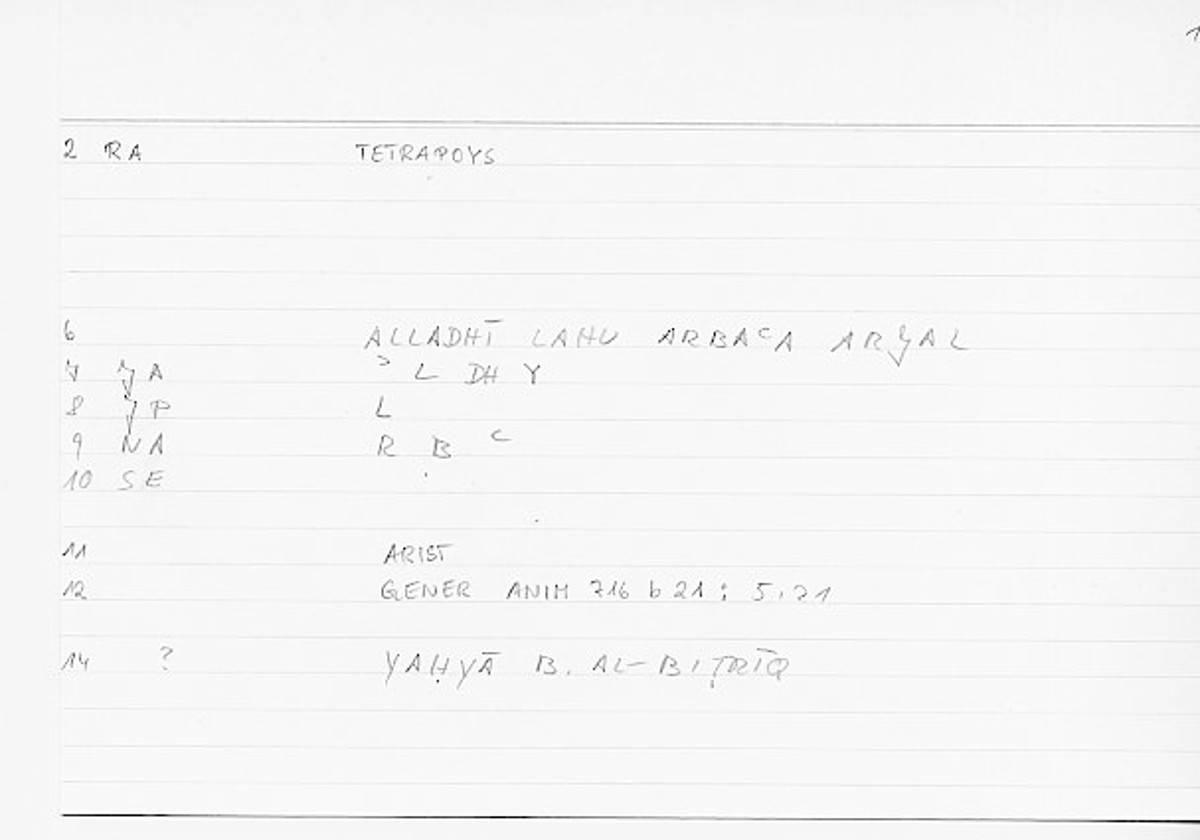 1
2 RA TETRAPOYS
6 ALLADHĪ LAHU ARBAᶜA ARJAL
7 JA ʾ L DH Y
8 JP L
9 NA R B ᶜ
10 SE
11 ARIST
12 GENER ANIM 716 b 21 ; 5,21
14 ? YAḤYĀ B. AL-BIṬRĪQ